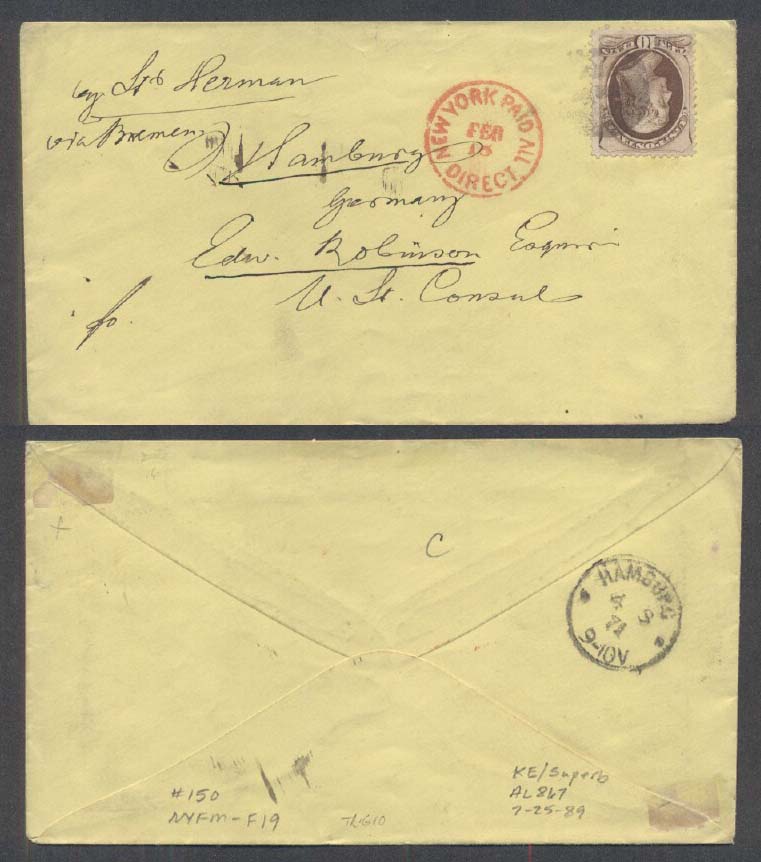 by Str Herman
via Bremen
Hamburg
Germany
Edw. Robinson Esquire
U. St. Consul
NEW YORK PAID ALL
FEB
DIRECT
HAMBURG
4 3
71
9-10V
C
#150
NYFM-F19
KE/Superb
AL867
7-25-89